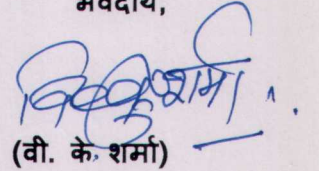 भवदीय,
वि० कु० शर्मा
(वी. के. शर्मा)